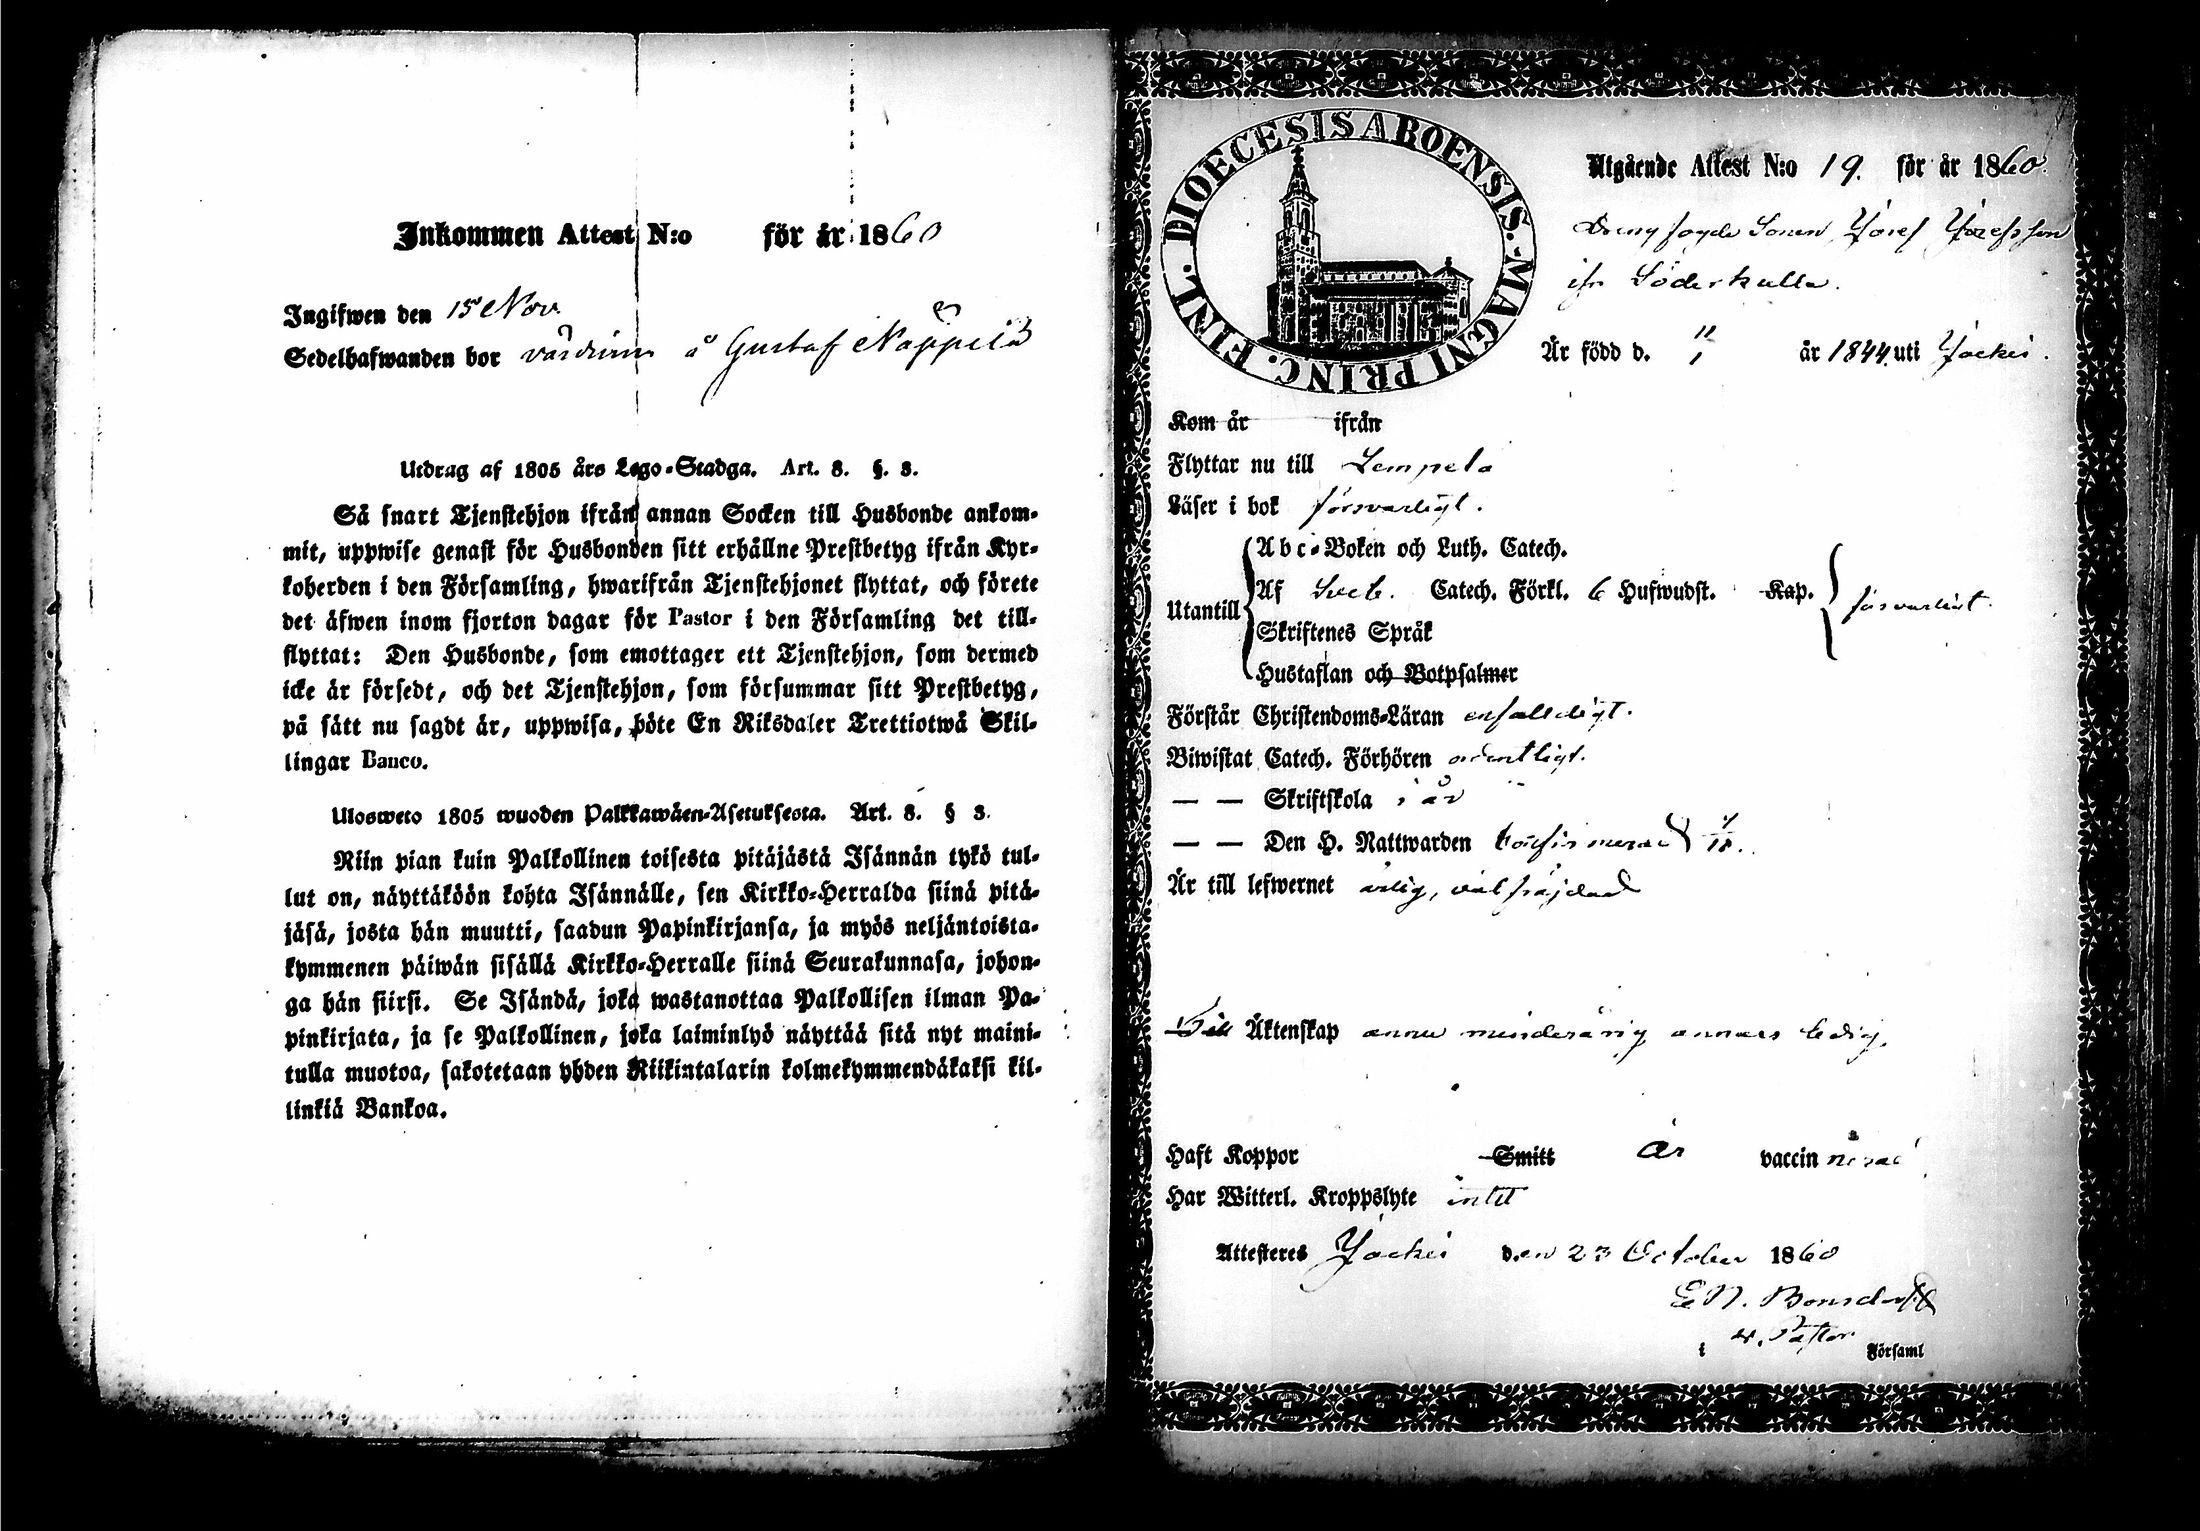 Inkommen Attest N:o för år 1860
Ingifwen den 15 Nov.
Sedelhafwanden bor å Gustaf Näppilä
Utdrag af 1805 års Lego-Stadga. Art. 8. §. 3.
Så snart Tjenstehjon ifrån annan Socken till Husbonde ankom-
mit, uppwise genast för Husbonden sitt erhållne Prestbetyg ifrån Kyr-
koherden i den Församling, hwarifrån Tjenstehjonet flyttat, och förete
det äfwen inom fjorton dagar för Pastor i den Församling det till-
flyttat: Den Husbonde, som emottager ett Tjenstehjon, som dermed
icke är försedt, och det Tjenstehjon, som försummar sitt Prestbetyg,
på sätt nu sagdt är, uppwisa, böte En Riksdaler Trettiotwå Skil-
lingar Banco.
Ulosweto 1805 wuoden Palkkawäen-Asetuksesta. Art. 8. § 3.
Niin pian kuin Palkollinen toisesta pitäjästä Isännän tykö tul-
lut on, näyttäköön kohta Isännälle, sen Kirkko-Herralda siinä pitä-
jäsä, josta hän muutti, saadun Papinkirjansa, ja myös neljäntoista-
kymmenen päiwän sisällä Kirkko-Herralle siinä Seurakunnasa, johon-
ga hän siirsi. Se Isändä, joka wastanottaa Palkollisen ilman Pa-
pinkirjata, ja se Palkollinen, joka laiminlyö näyttää sitä nyt maini-
tulla muotoa, sakotetaan yhden Riikintalarin kolmekymmendäkaksi kil-
linkiä Bankoa.
DIOECESIS ABOENSIS. MAGNI PRINC. FINL.
Utgående Attest N:o 19. för år 1860.
Drengfogde Sonen Josef Josefsson
ifr Söderkulla.
Är född d. 11/1 år 1844. uti Jockis.
Kom år ifrån
Flyttar nu till Lempelä
Läser i bok försvarligt.
Utantill
Abc-Boken och Luth. Catech.
Af Sveb. Catech. Förkl. 6 Hufwudst. Kap. försvarligt.
Skriftenes Språk
Hustaflan och Botpsalmer
Förstår Christendoms-Läran enfalldigt.
Biwistat Catech. Förhören ordentligt.
— — Skriftskola i år
— — Den H. Nattwarden
Är till lefwernet ärlig, välfräjdad
Till Äktenskap ännu minderårig annars ledig.
Haft Koppor Smitt är vaccinerad
Har Witterl. Kroppslyte intet
Attesteres Jockis den 23 October 1860
E N. Bonsdorff
v. Pastor
i Församl